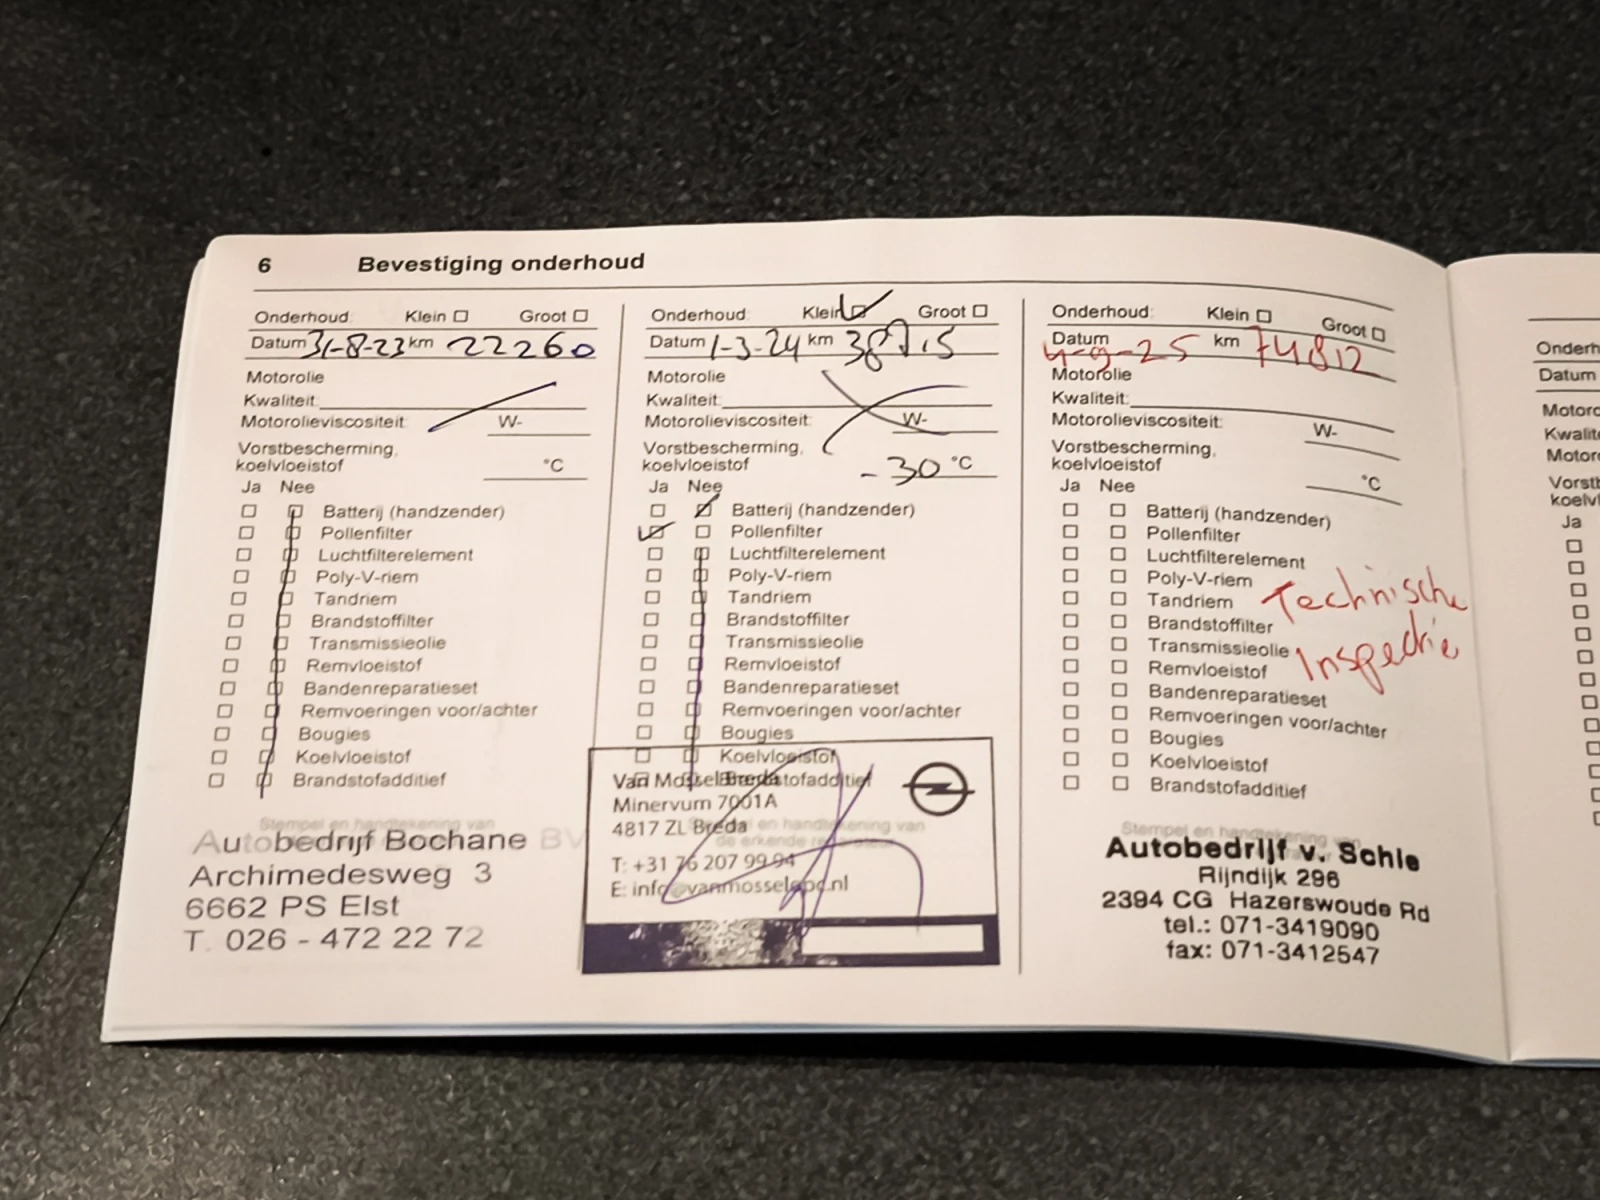 6 Bevestiging onderhoud
Onderhoud: Klein Groot
Datum 31-8-23 km 22260
Motorolie
Kwaliteit:
Motorolieviscositeit: W-
Vorstbescherming,
koelvloeistof °C
Ja Nee
Batterij (handzender)
Pollenfilter
Luchtfilterelement
Poly-V-riem
Tandriem
Brandstoffilter
Transmissieolie
Remvloeistof
Bandenreparatieset
Remvoeringen voor/achter
Bougies
Koelvloeistof
Brandstofadditief
Stempel en handtekening van
Autobedrijf Bochane BV
Archimedesweg 3
6662 PS Elst
T. 026 - 472 22 72
Onderhoud: Klein Groot
Datum 1-3-24 km
Motorolie
Kwaliteit:
Motorolieviscositeit: W-
Vorstbescherming,
koelvloeistof -30 °C
Ja Nee
Batterij (handzender)
Pollenfilter
Luchtfilterelement
Poly-V-riem
Tandriem
Brandstoffilter
Transmissieolie
Remvloeistof
Bandenreparatieset
Remvoeringen voor/achter
Bougies
Koelvloeistof
Brandstofadditief
Van Mossel Breda
Minervum 7001A
4817 ZL Breda
en handtekening van
de erkende reparateur
T: +31 76 207 99 94
E: info@vanmosselopc.nl
Onderhoud: Klein Groot
Datum 4-9-25 km 74812
Motorolie
Kwaliteit:
Motorolieviscositeit: W-
Vorstbescherming,
koelvloeistof °C
Ja Nee
Batterij (handzender)
Pollenfilter
Luchtfilterelement
Poly-V-riem
Tandriem
Brandstoffilter
Transmissieolie
Remvloeistof
Bandenreparatieset
Remvoeringen voor/achter
Bougies
Koelvloeistof
Brandstofadditief
Technische
Inspectie
Stempel en handtekening van
Autobedrijf v. Schie
Rijndijk 296
2394 CG Hazerswoude Rd
tel.: 071-3419090
fax: 071-3412547
Onderh
Datum
Motoro
Kwalite
Motor
Vorstb
koelvl
Ja